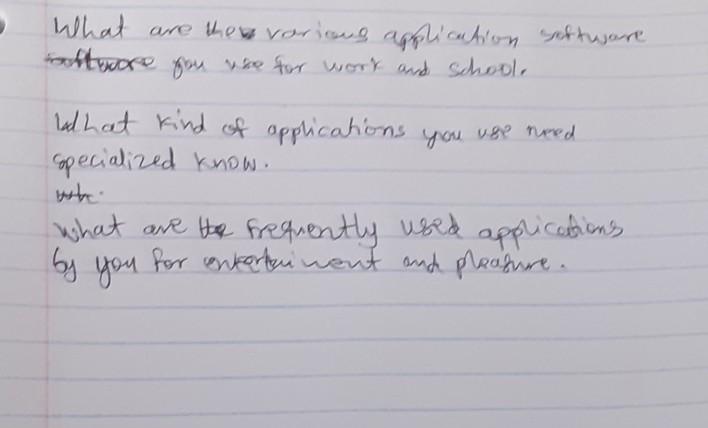 What are the various application software
software you use for work and school.
What kind of applications you use need
specialized know.
What are the frequently used applications
by you for entertainment and pleasure.